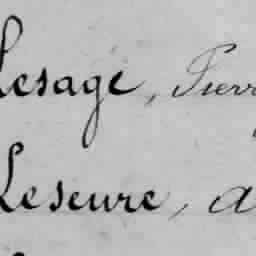 Lesage, Pierr
Leseure, a